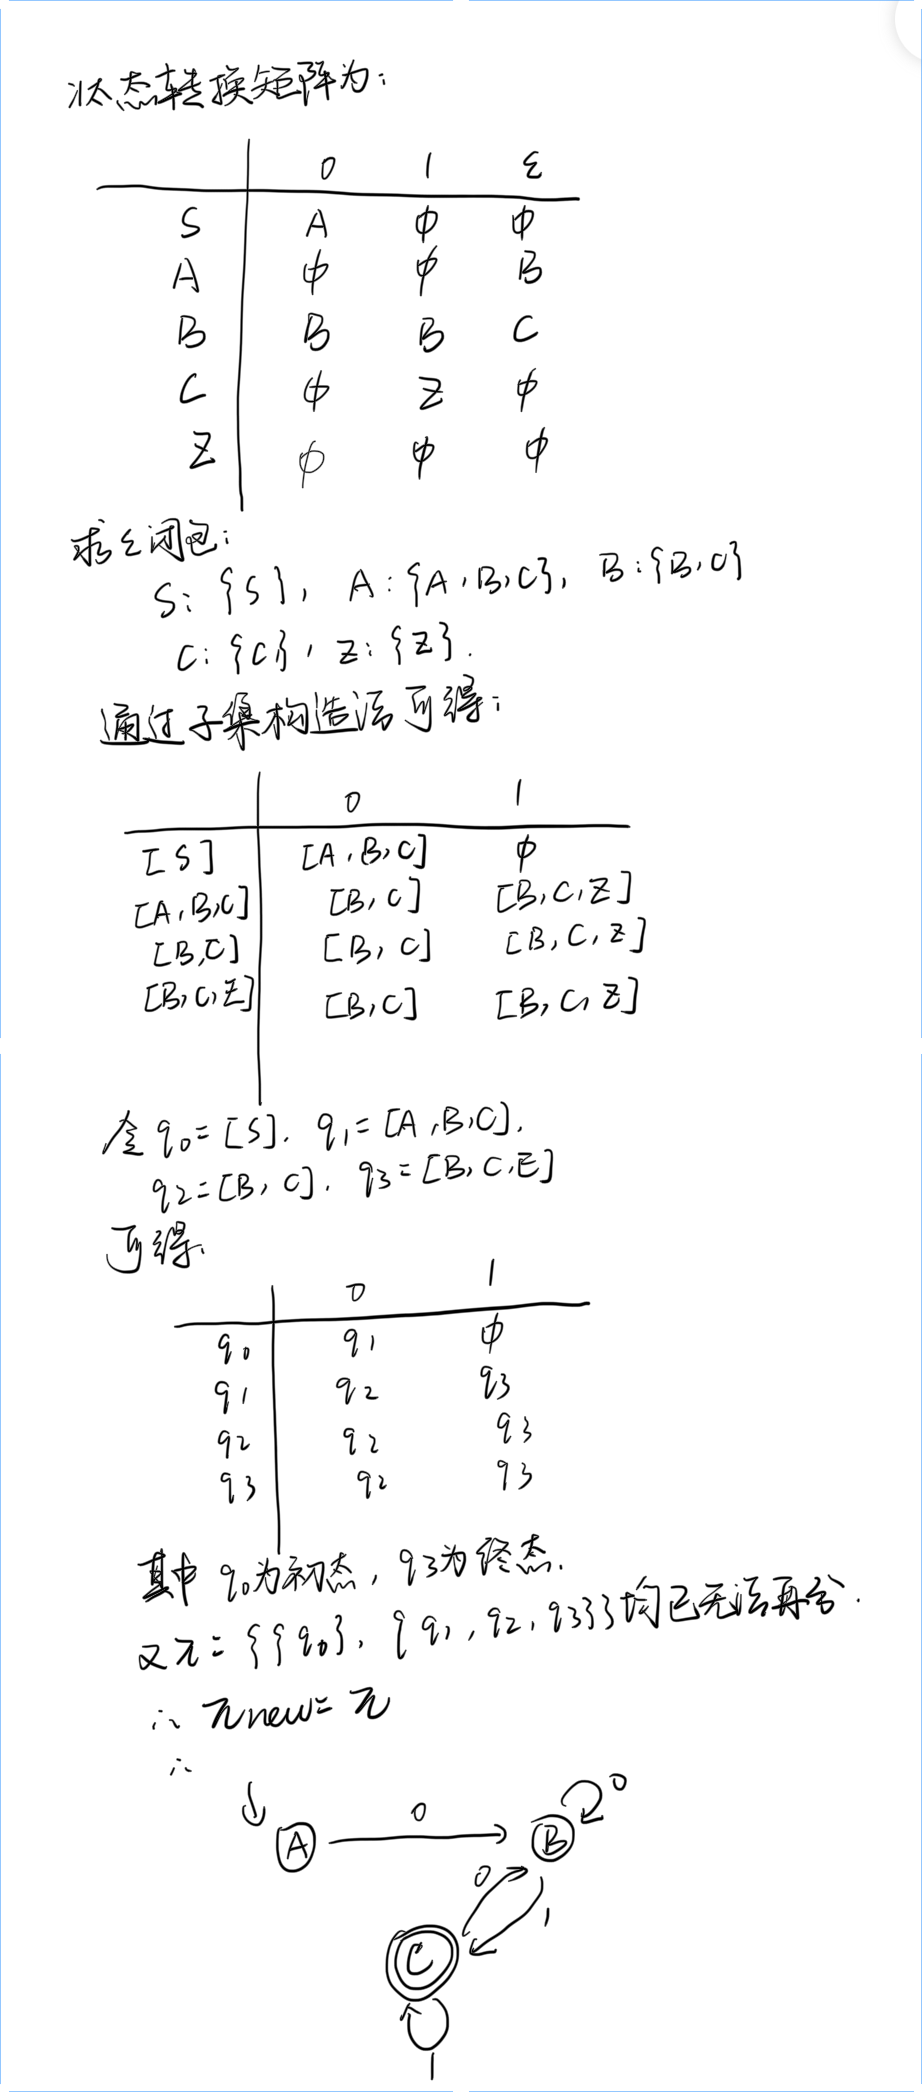 状态转换矩阵为：
0 1 ε
S A φ φ
A φ φ B
B B B C
C φ Z φ
Z φ φ φ
求ε闭包：
S：{S}，A：{A，B，C}，B：{B，C}
C：{C}，Z：{Z}．
通过子集构造法可得：
0 1
[S] [A，B，C] φ
[A，B，C] [B，C] [B，C，Z]
[B，C] [B，C] [B，C，Z]
[B，C，Z] [B，C] [B，C，Z]
令q0=[S]．q1=[A，B，C]．
q2=[B，C]．q3=[B，C，E]
可得．
0 1
q0 q1 φ
q1 q2 q3
q2 q2 q3
q3 q2 q3
其中q0为初态，q3为终态．
又π={{q0}，{q1，q2，q3}}均已无法再分．
∴πnew=π
∴
A 0 B 0
0 1
C
1